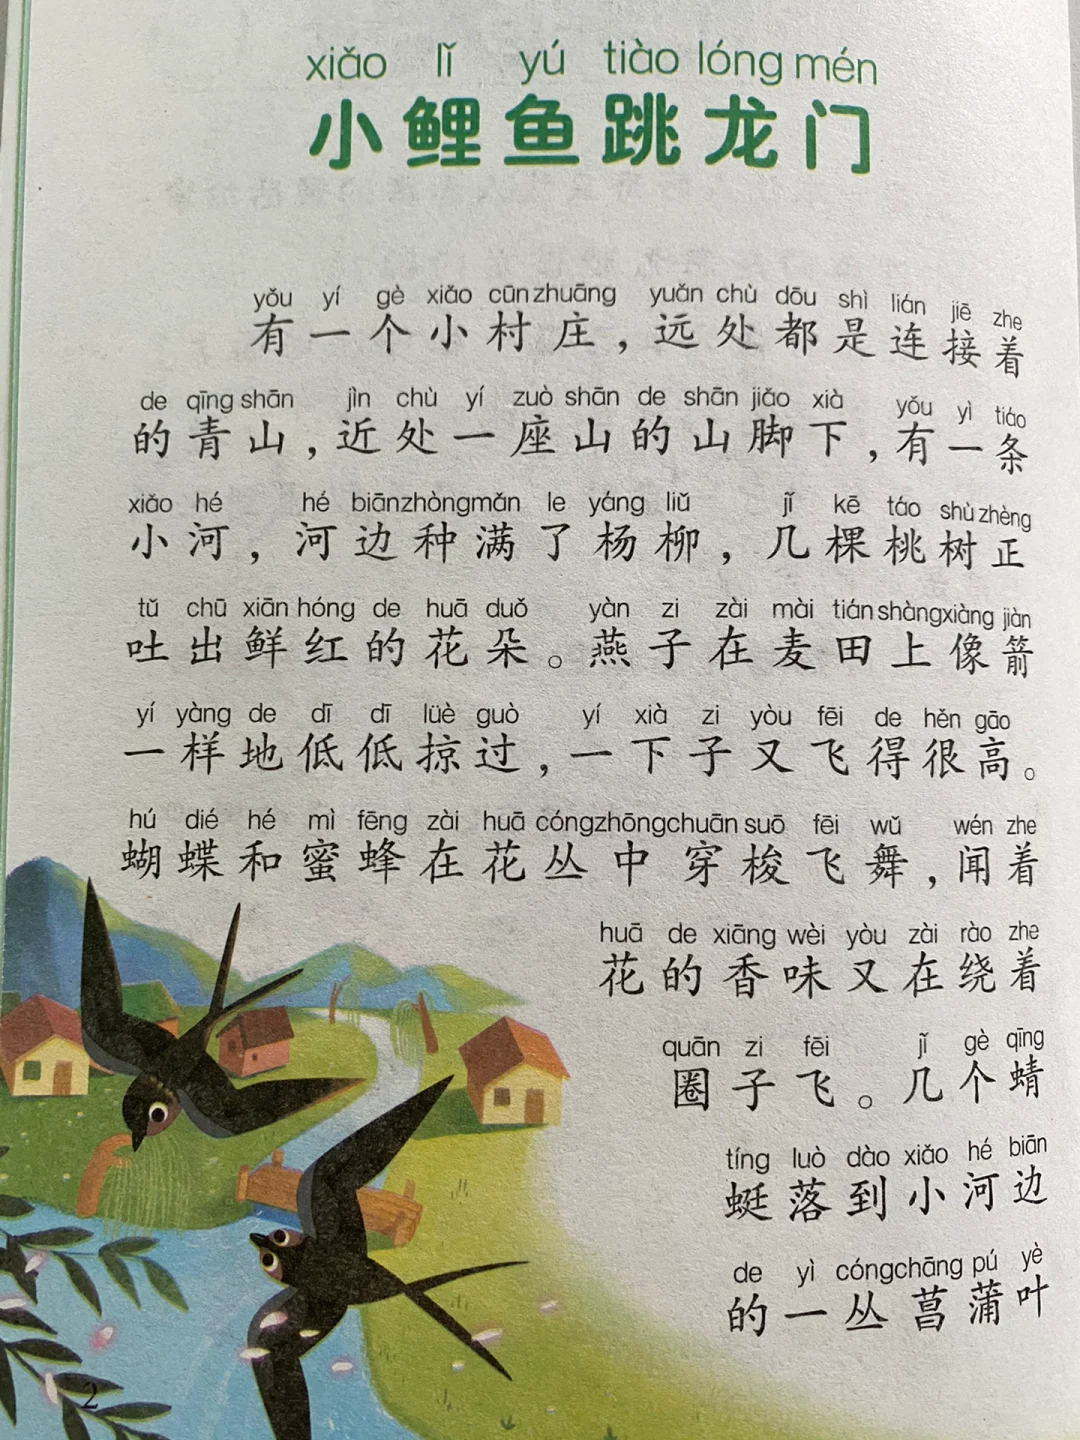 xiǎo lǐ yú tiào lóng mén
小鲤鱼跳龙门
yǒu yí gè xiǎo cūn zhuāng yuǎn chù dōu shì lián jiē zhe
有一个小村庄，远处都是连接着
de qīng shān jìn chù yí zuò shān de shān jiǎo xià yǒu yì tiáo
的青山，近处一座山的山脚下，有一条
xiǎo hé hé biān zhòng mǎn le yáng liǔ jǐ kē táo shù zhèng
小河，河边种满了杨柳，几棵桃树正
tǔ chū xiān hóng de huā duǒ yàn zi zài mài tián shàng xiàng jiàn
吐出鲜红的花朵。燕子在麦田上像箭
yí yàng de dī dī lüè guò yí xià zi yòu fēi de hěn gāo
一样地低低掠过，一下子又飞得很高。
hú dié hé mì fēng zài huā cóng zhōng chuān suō fēi wǔ wén zhe
蝴蝶和蜜蜂在花丛中穿梭飞舞，闻着
huā de xiāng wèi yòu zài rào zhe
花的香味又在绕着
quān zi fēi jǐ gè qīng
圈子飞。几个蜻
tíng luò dào xiǎo hé biān
蜓落到小河边
de yì cóng chāng pú yè
的一丛菖蒲叶
2